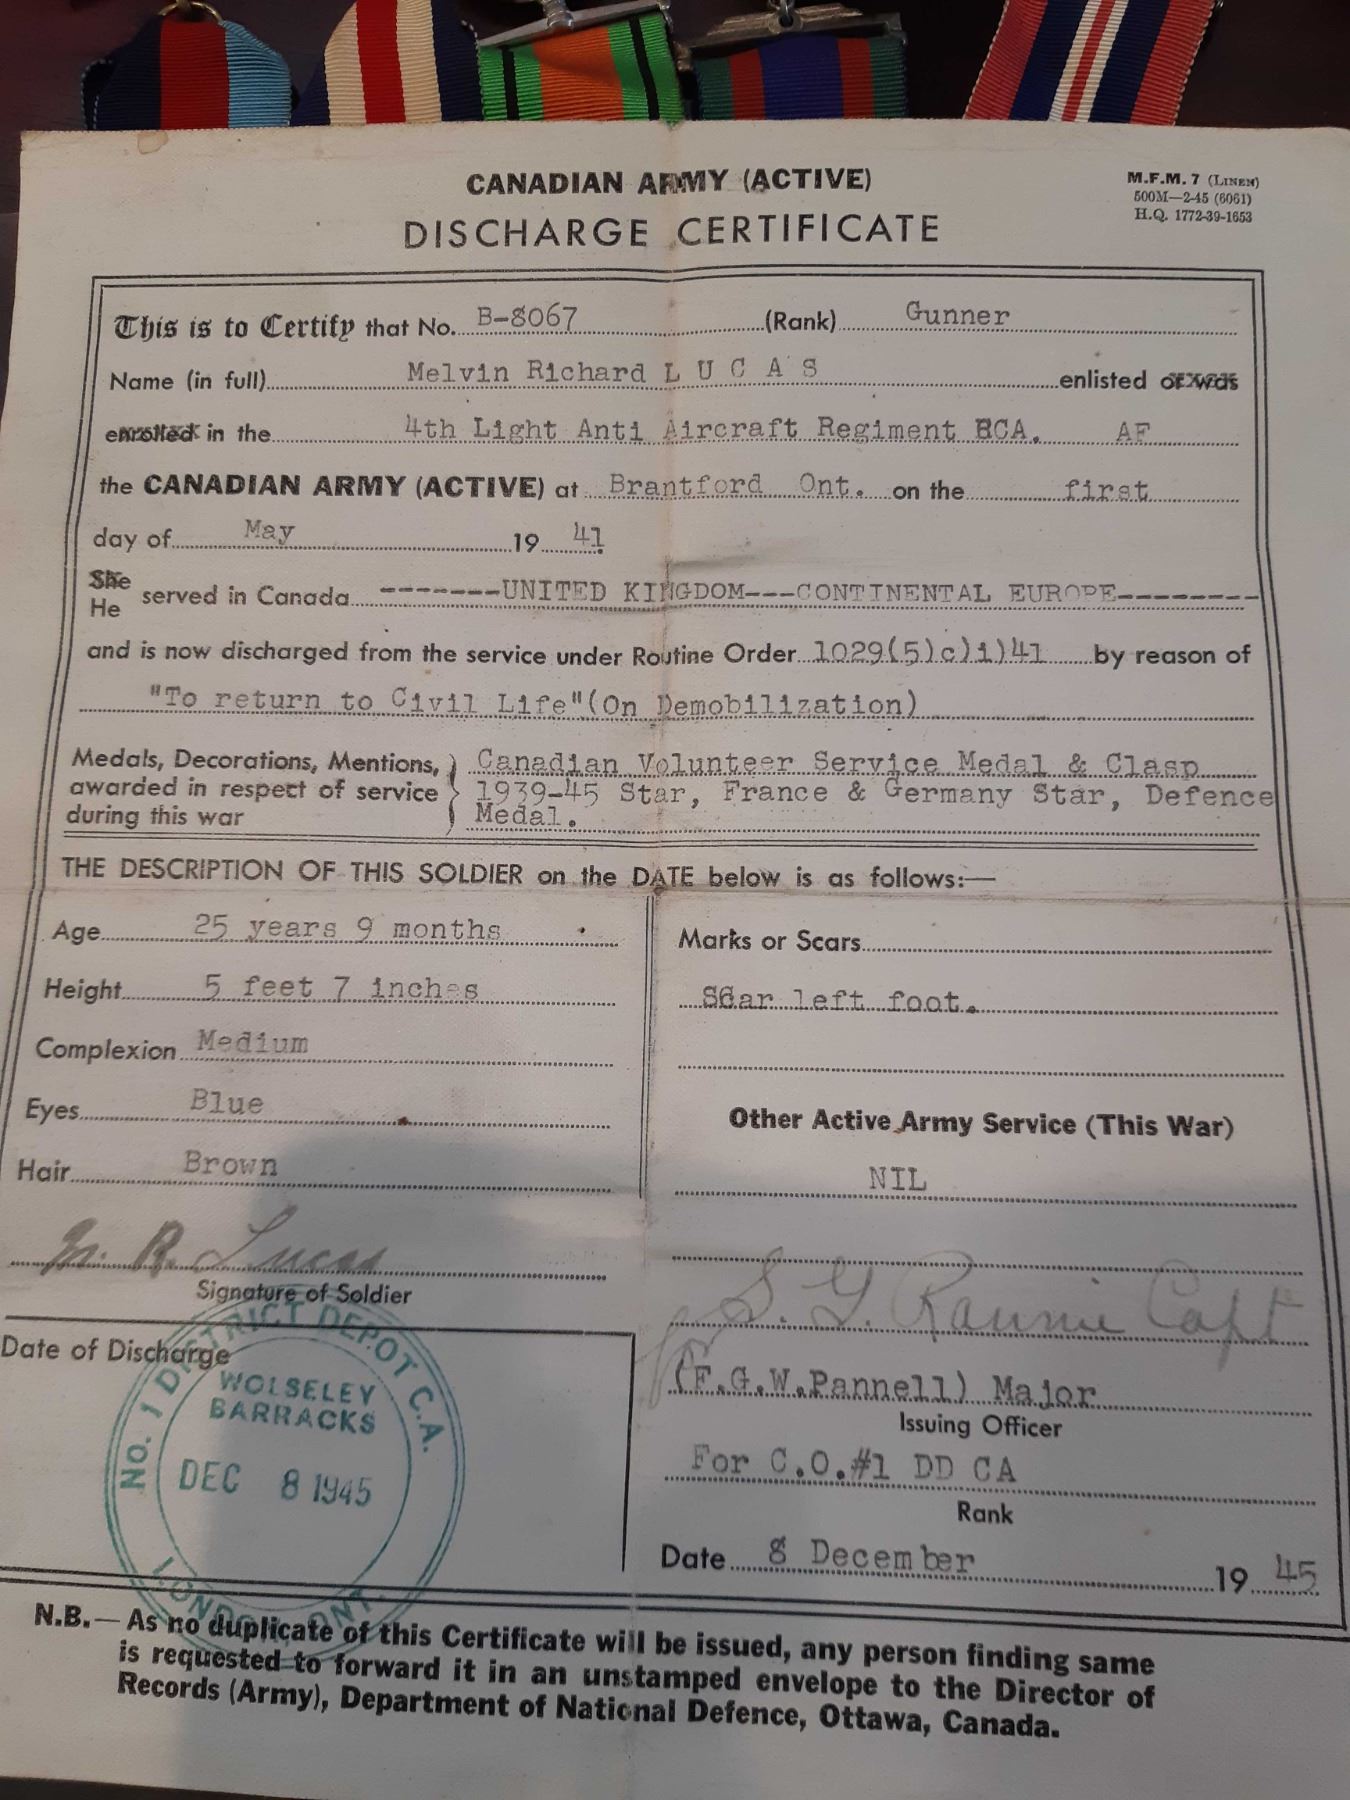 CANADIAN ARMY (ACTIVE)
DISCHARGE CERTIFICATE
M.F.M. 7 (LINEN)
500M—2-45 (6061)
H.Q. 1772-39-1653
This is to Certify that No. B-8067 (Rank) Gunner
Name (in full) Melvin Richard L U C A S enlisted or was
enrolled in the 4th Light Anti Aircraft Regiment RCA. AF
the CANADIAN ARMY (ACTIVE) at Brantford Ont. on the first
day of May 19 41.
She
He served in Canada -------UNITED KINGDOM---CONTINENTAL EUROPE--------
and is now discharged from the service under Routine Order 1029(5)c)i)41 by reason of
"To return to Civil Life"(On Demobilization)
Medals, Decorations, Mentions, Canadian Volunteer Service Medal & Clasp
awarded in respect of service 1939-45 Star, France & Germany Star, Defence
during this war Medal.
THE DESCRIPTION OF THIS SOLDIER on the DATE below is as follows:—
Age 25 years 9 months
Height 5 feet 7 inches
Complexion Medium
Eyes Blue
Hair Brown
M. R. Lucas
Signature of Soldier
Marks or Scars
Scar left foot.
Other Active Army Service (This War)
NIL
for S. G. Rannie Capt
(F.G.W.Pannell) Major
Issuing Officer
For C.O.#1 DD CA
Rank
Date 8 December 19 45
Date of Discharge
NO. 1 DISTRICT DEPOT C.A.
WOLSELEY
BARRACKS
DEC 8 1945
LONDON ONT.
N.B.—As no duplicate of this Certificate will be issued, any person finding same
is requested to forward it in an unstamped envelope to the Director of
Records (Army), Department of National Defence, Ottawa, Canada.